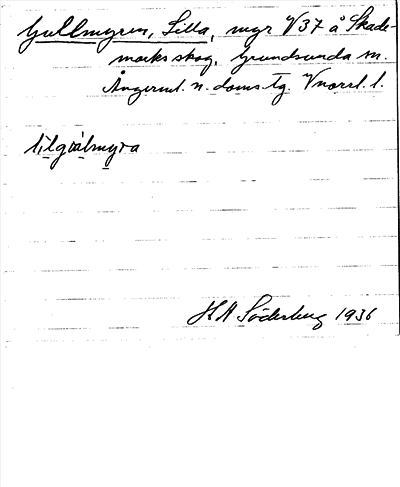 Gullmyren, Lilla, myr V37 å Skade-
marks skog, Grundsunda sn.
Ångerml. n. doms. tg. Vnorrl. l.
lilgülmyra
H A Söderberg 1936